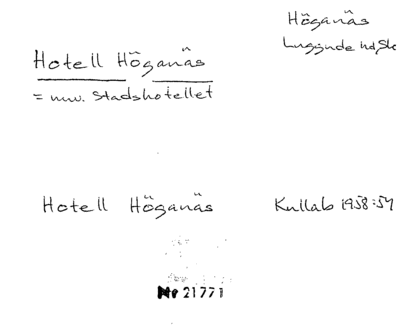 Höganäs
Luggude hd, Sk
Hotell Höganäs
= nuv. Stadshotellet
Hotell Höganäs
Kullab 1958:54
Nr 21771